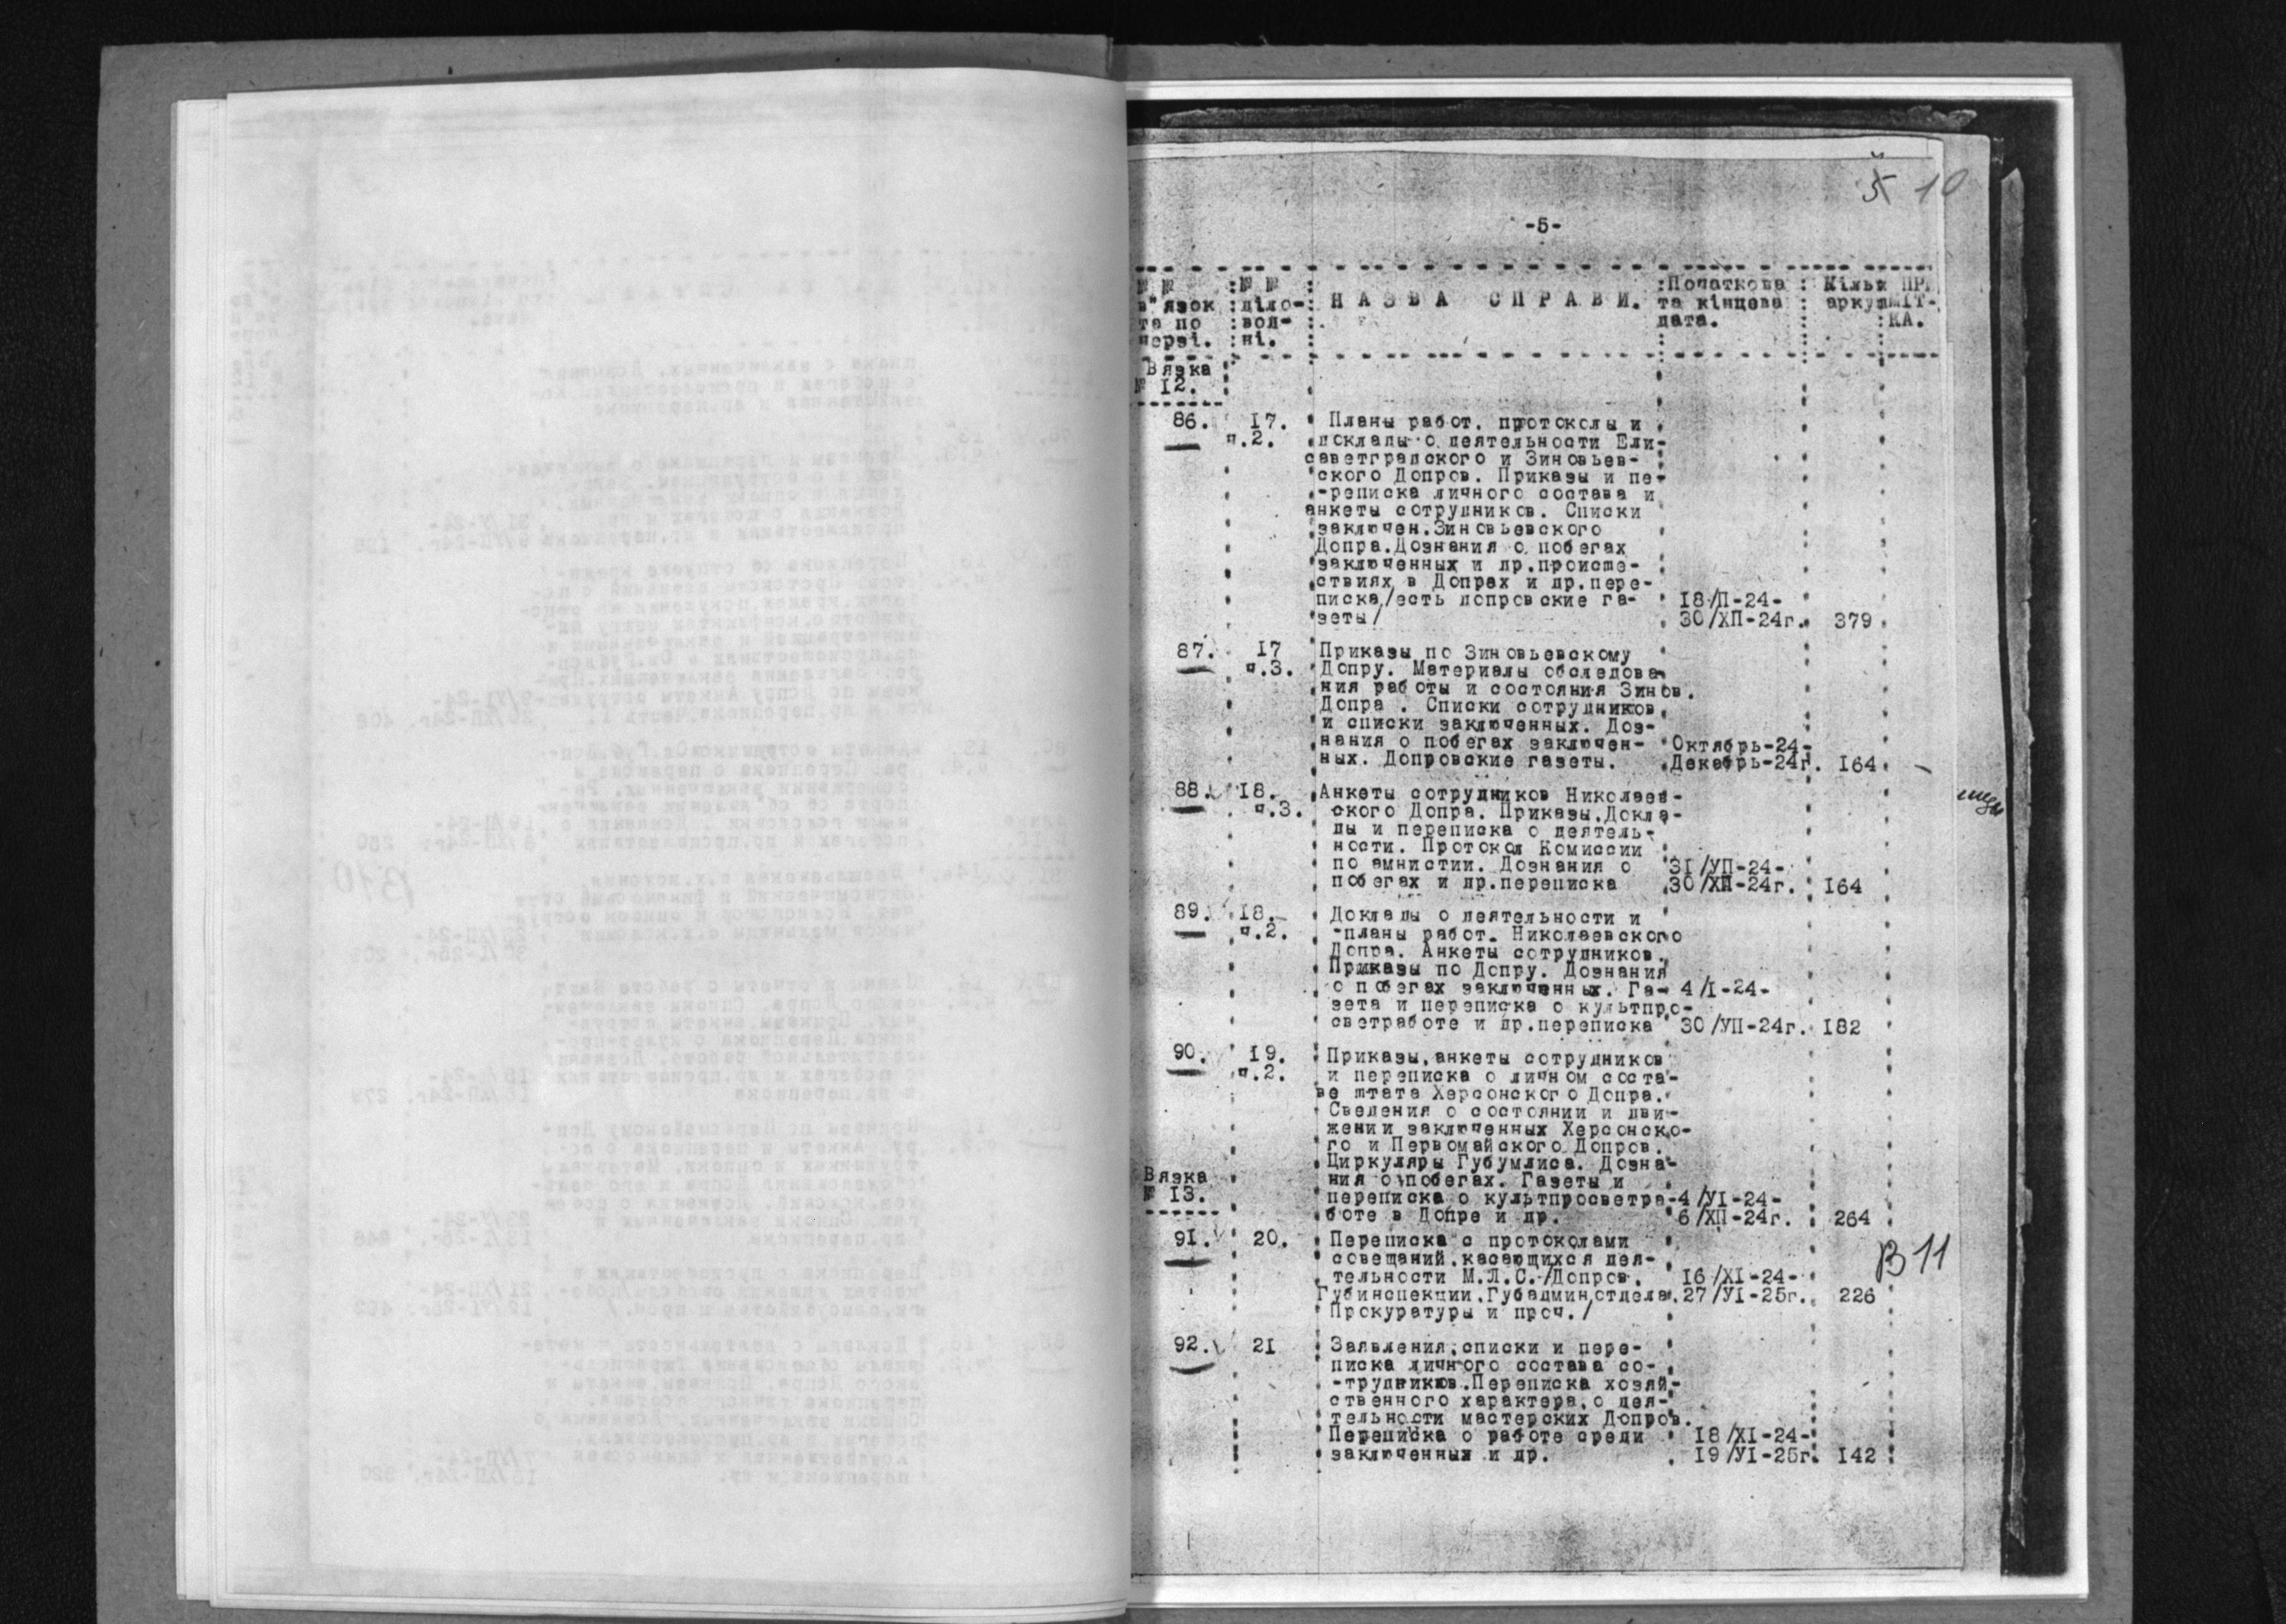 5 10
-5-
№ № :№ № : :Початкова : Кільк ПРИ
в"язок :діло- : НАЗВА СПРАВИ. та кінцева : аркуш МІТ-
та по :вод- : дата. : :КА.
черзі. :ні. :
Вязка
№ 12.
86. 17. Планы работ, протоколы и
ч.2. доклады о деятельности Ели-
саветградского и Зиновьев-
ского Допров. Приказы и пе-
-реписка личного состава и
анкеты сотрудников. Списки
заключен.Зиновьевского
Допра.Дознания о побегах
заключенных и др.происше-
ствиях в Допрах и др.пере-
писка/есть допровские га- 18/П-24-
зеты/ 30/ХП-24г. 379
87. 17 Приказы по Зиновьевскому
ч.3. Допру. Материалы обследова-
ния работы и состояния Зинов.
Допра . Списки сотрудников
и списки заключенных. Доз-
нания о побегах заключен- Октябрь-24-
ных. Допровские газеты. Декабрь-24г. 164
88. 18. Анкеты сотрудников Николаев-
ч.3. ского Допра. Приказы.Докла-
ды и переписка о деятель-
ности. Протокол Комиссии
по амнистии. Дознания о 31/УП-24-
побегах и др.переписка 30/ХП-24г. 164
89. 18. Доклады о деятельности и
ч.2. -планы работ. Николаевского
Допра. Анкеты сотрудников.
Приказы по Допру. Дознания
о побегах заключенных. Га- 4/I-24-
зета и переписка о культпро-
светработе и др.переписка 30/УП-24г. 182
90. 19. Приказы,анкеты сотрудников
ч.2. и переписка о личном соста-
ве штата Херсонского Допра.
Сведения о состоянии и дви-
жении заключенных Херсонско-
го и Первомайского Допров.
Циркуляры Губумлиса. Дозна-
Вязка ния о побегах. Газеты и
№ 13. переписка о культпросветра- 4/УI-24-
боте в Допре и др. 6/ХП-24г. 264
91. 20. Переписка с протоколами
совещаний,касающихся дея-
тельности М.Л.С./Допров, 16/ХI-24-
Губинспекции,Губадмин,отдела, 27/УI-25г. 226
Прокуратуры и проч./
В 11
92. 21 Заявления,списки и пере-
писка личного состава со-
-трудников.Переписка хозяй-
ственного характера,о дея-
тельности мастерских Допров.
Переписка о работе среди 18/ХI-24-
заключенных и др. 19/УI-25г. 142